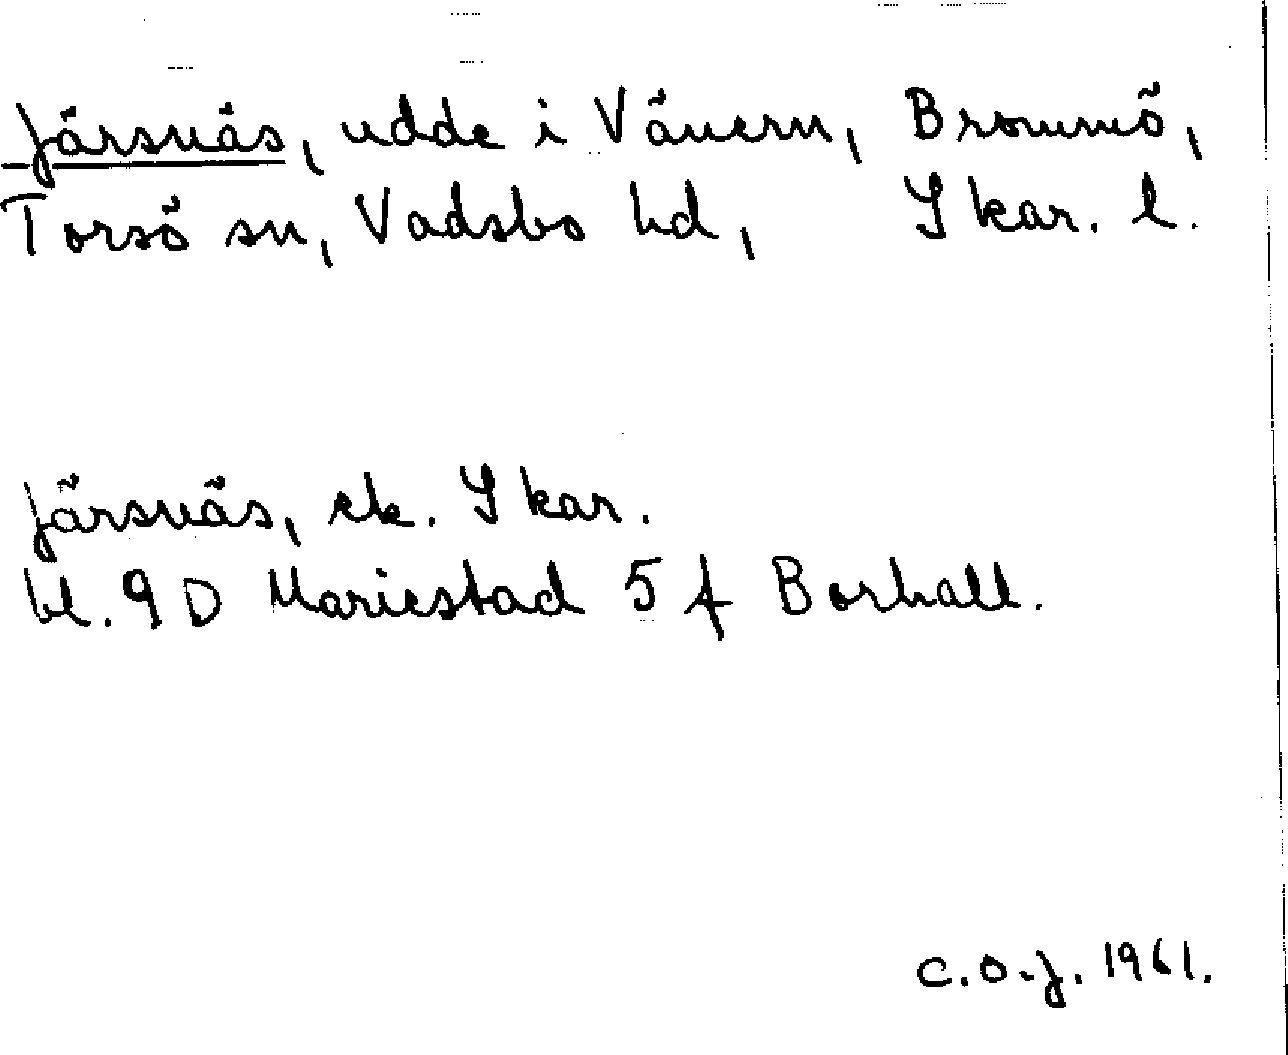 Järsnäs, udde i Vänern, Brommö,
Torsö sn, Vadsbo hd, Skar. l.
Järsnäs, ek. Skar.
bl. 9 D Mariestad 5 f Borhall.
C.O.J. 1961.